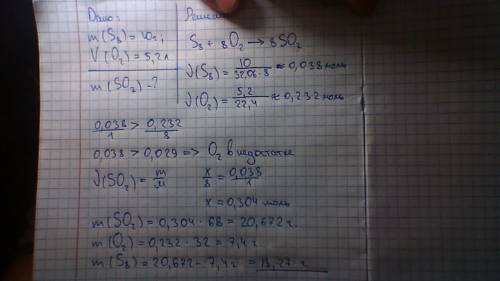 Дано:
m(S₈) = 10г;
V(O₂) = 5,2л
m(SO₂) - ?
Решение
S₈ + 8O₂ → 8SO₂
ν(S₈) = 10/(32,06 · 8) ≈ 0,038 моль
ν(O₂) = 5,2/22,4 ≈ 0,232 моль
0,038/1 > 0,232/8
0,038 > 0,029 => O₂ в недостатке
ν(SO₂) = m/M x/8 = 0,038/1
x = 0,304 моль
m(SO₂) = 0,304 · 68 = 20,672 г.
m(O₂) = 0,232 · 32 = 7,4 г.
m(S₈) = 20,672 - 7,4 г = 13,27 г